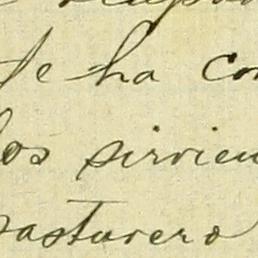 se ha con
los sirvien
pasturero